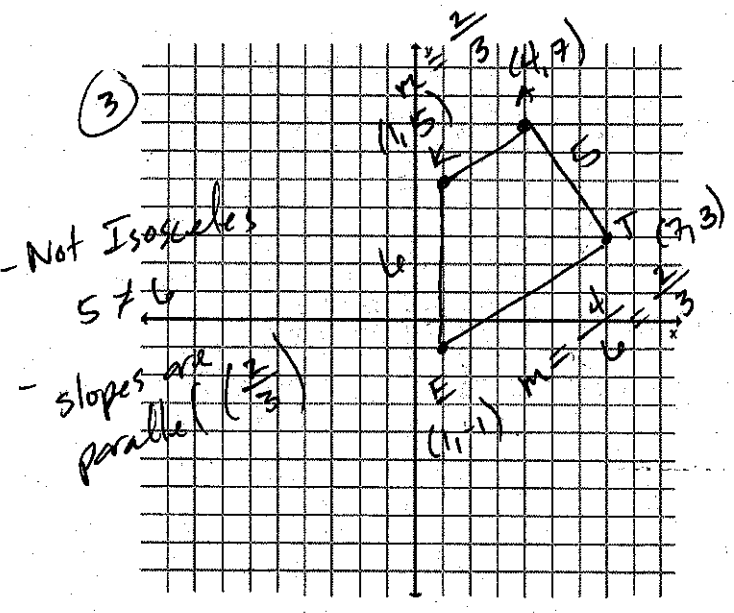 3
m = 2/3
A (4,7)
(1,5)
K
5
T (7,3)
6
- Not Isosceles
5 ≠ 6
- slopes are
parallel (2/3)
m = 4/6 = 2/3
E
(1,-1)
y
x